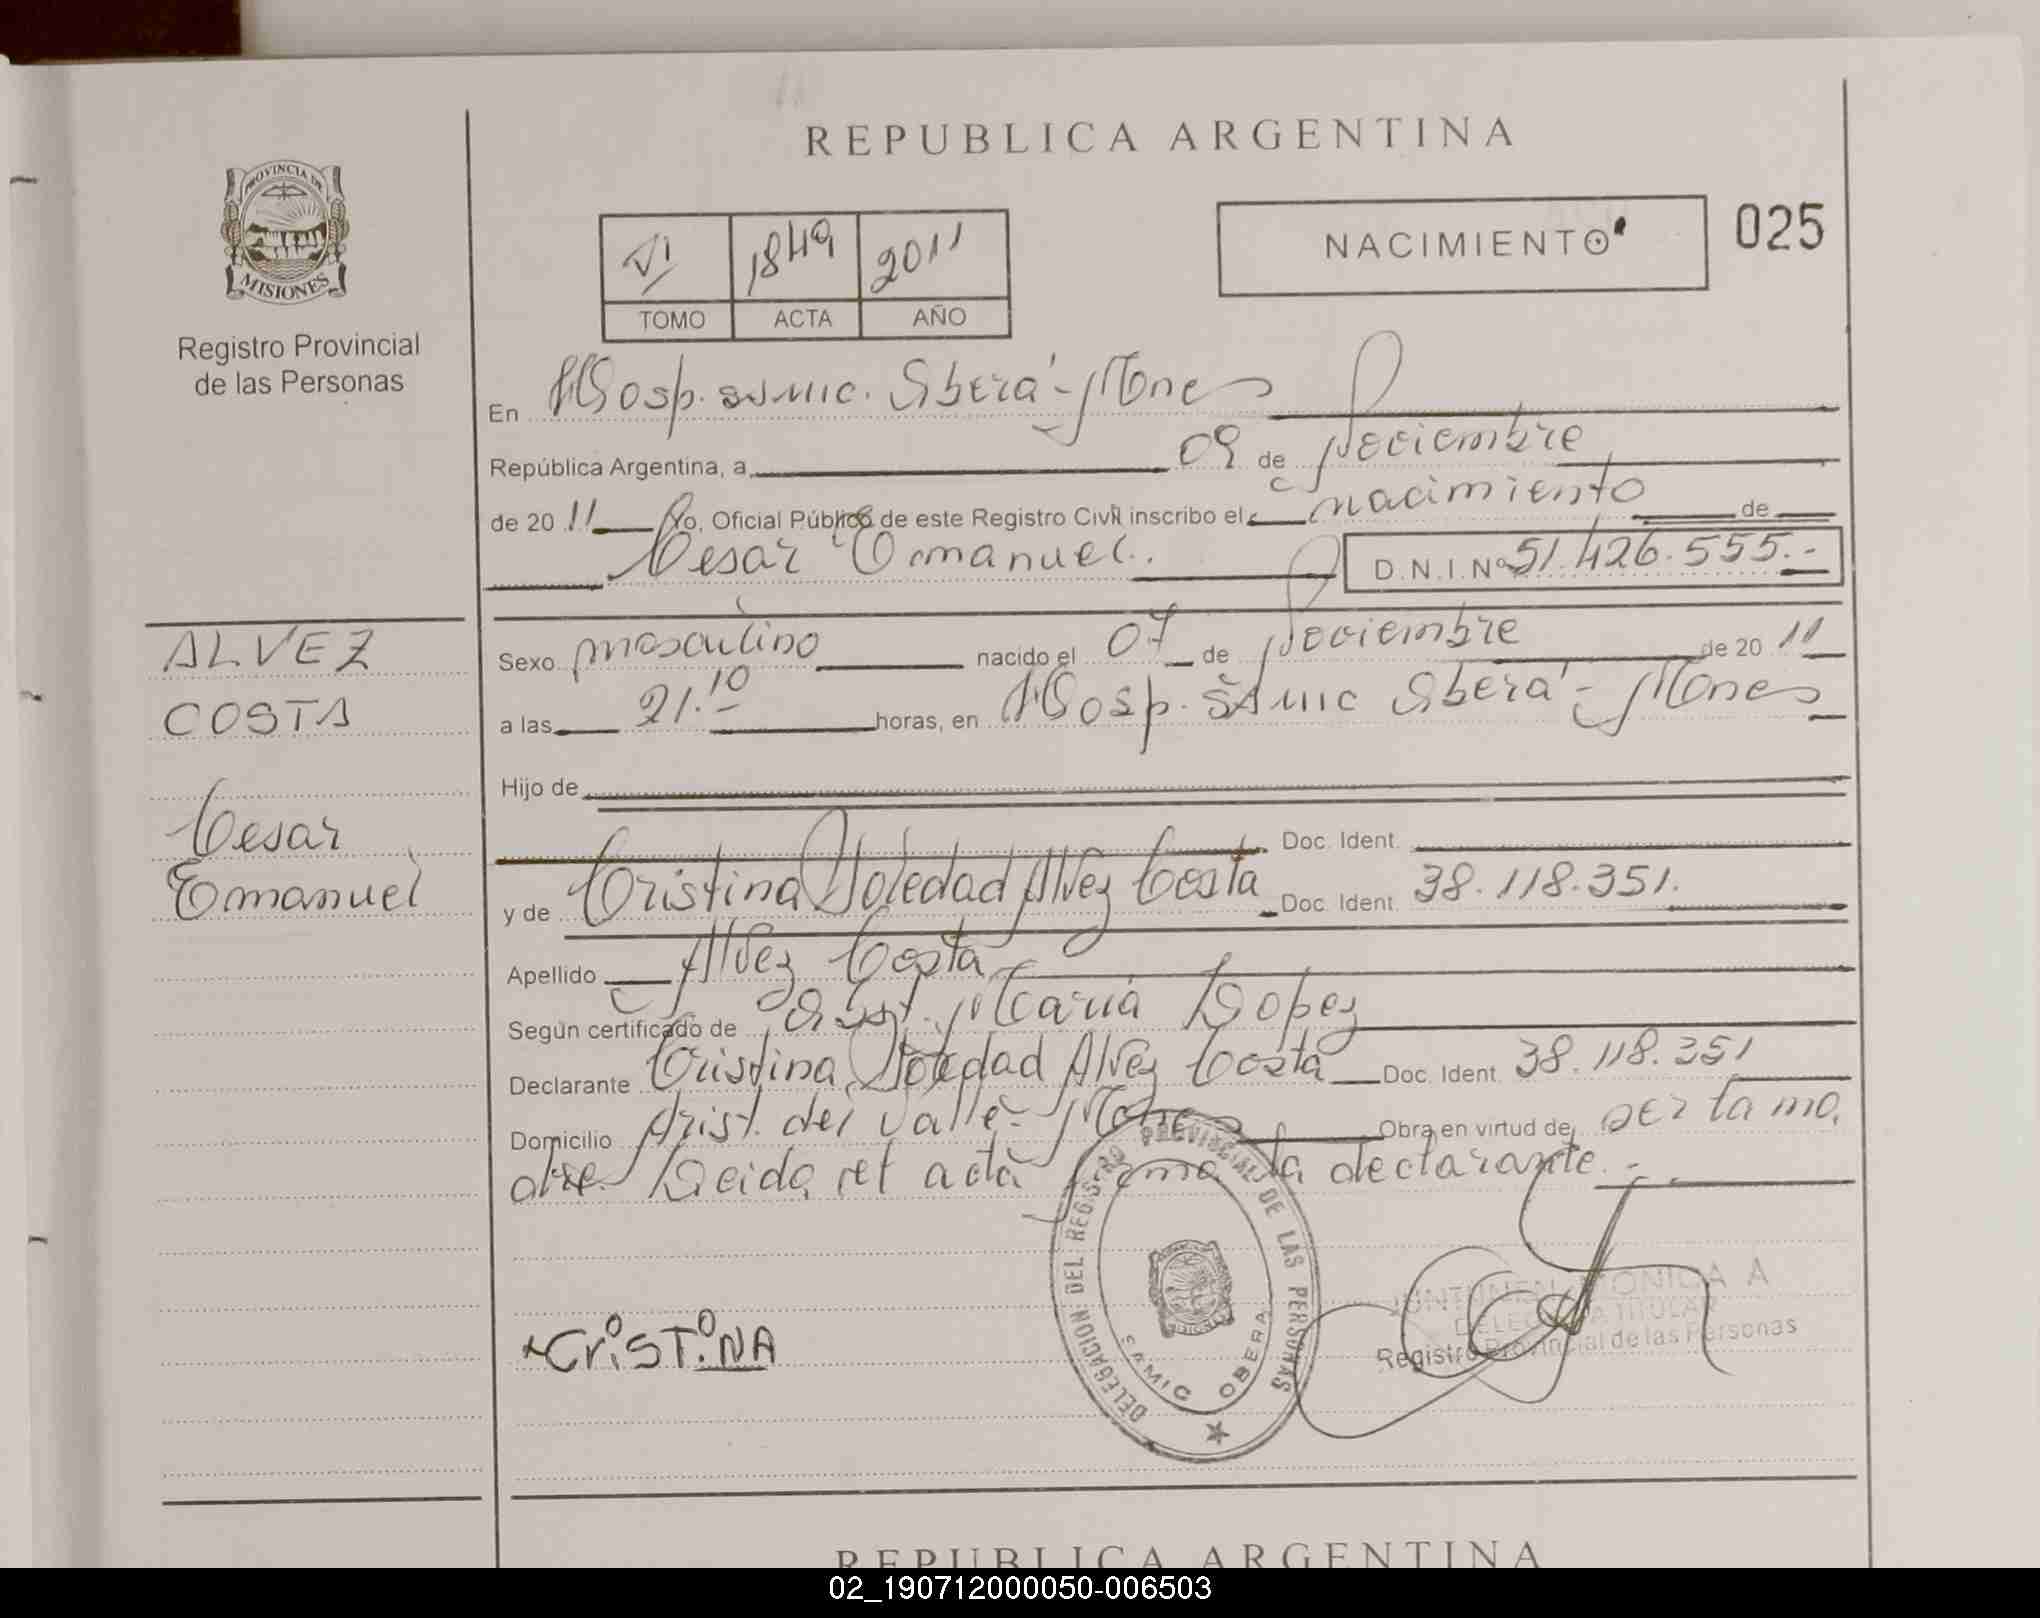 REPUBLICA ARGENTINA
PROVINCIA DE
MISIONES
Registro Provincial
de las Personas
VI 1849 2011
TOMO ACTA AÑO
NACIMIENTO
025
En Hosp. SAMIC. Oberá - Mnes
República Argentina, a 09 de Noviembre
de 20 11 Yo, Oficial Público de este Registro Civil inscribo el nacimiento de
Cesar Emanuel. D.N.I.Nº 51.426.555.-
ALVEZ
COSTA
Cesar
Emanuel
Sexo masculino nacido el 07 de Noviembre de 20 11
a las 21.10 horas, en Hosp. SAMIC Oberá - Mnes
Hijo de
Doc. Ident.
y de Cristina Soledad Alvez Costa Doc. Ident. 38.118.351.
Apellido Alvez Costa
Según certificado de Obst. María Lopez
Declarante Cristina Soledad Alvez Costa Doc. Ident. 38.118.351
Domicilio Arist. del Valle - Mnes Obra en virtud de ser la ma
dre Leida el acta firma la declarante.-
CRiSTiNA
DELEGACION DEL REGISTRO PROVINCIAL DE LAS PERSONAS
SAMIC OBERA
MONICA A
DELEGADA TITULAR
Registro Provincial de las Personas
REPUBLICA ARGENTINA
02_190712000050-006503